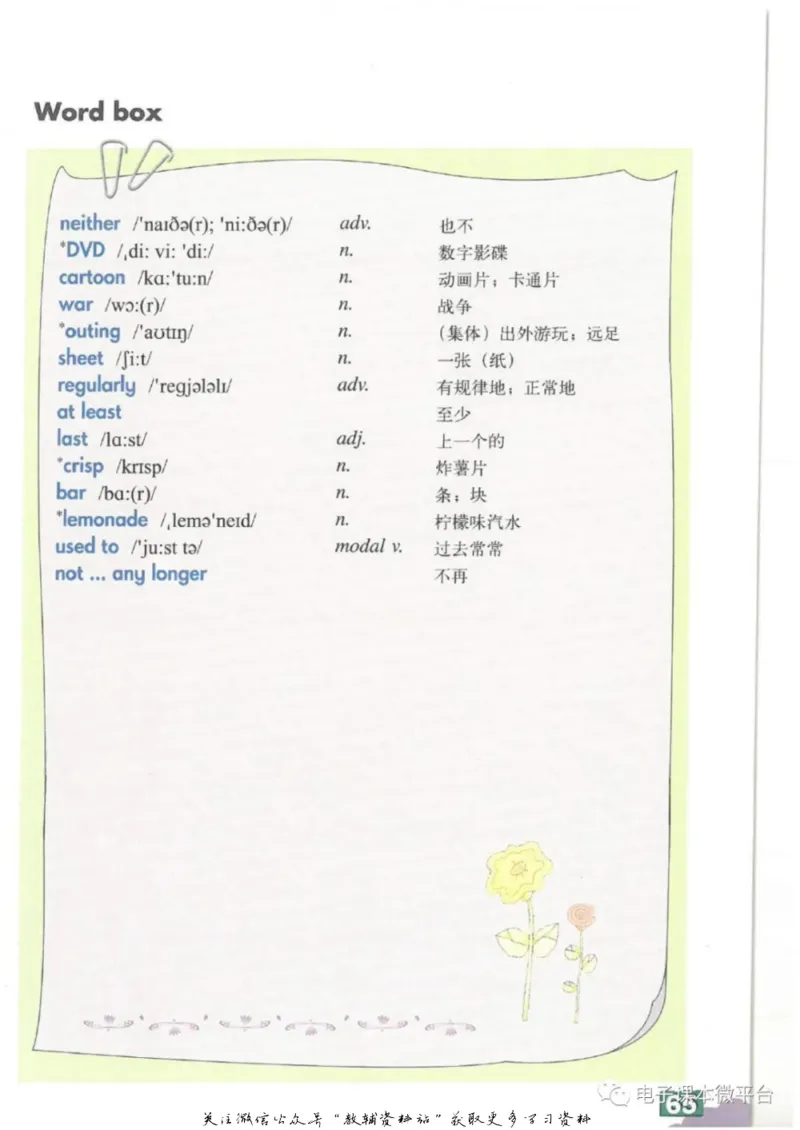 Word box
neither /'naɪðə(r); 'ni:ðə(r)/ adv. 也不
*DVD /ˌdi: vi: 'di:/ n. 数字影碟
cartoon /kɑ:'tu:n/ n. 动画片；卡通片
war /wɔ:(r)/ n. 战争
*outing /'aʊtɪŋ/ n. （集体）出外游玩；远足
sheet /ʃi:t/ n. 一张（纸）
regularly /'regjələlɪ/ adv. 有规律地；正常地
at least 至少
last /lɑ:st/ adj. 上一个的
*crisp /krɪsp/ n. 炸薯片
bar /bɑ:(r)/ n. 条；块
*lemonade /ˌlemə'neɪd/ n. 柠檬味汽水
used to /'ju:st tə/ modal v. 过去常常
not ... any longer 不再
电子课本微平台
65
关注微信公众号“教辅资料站”获取更多学习资料